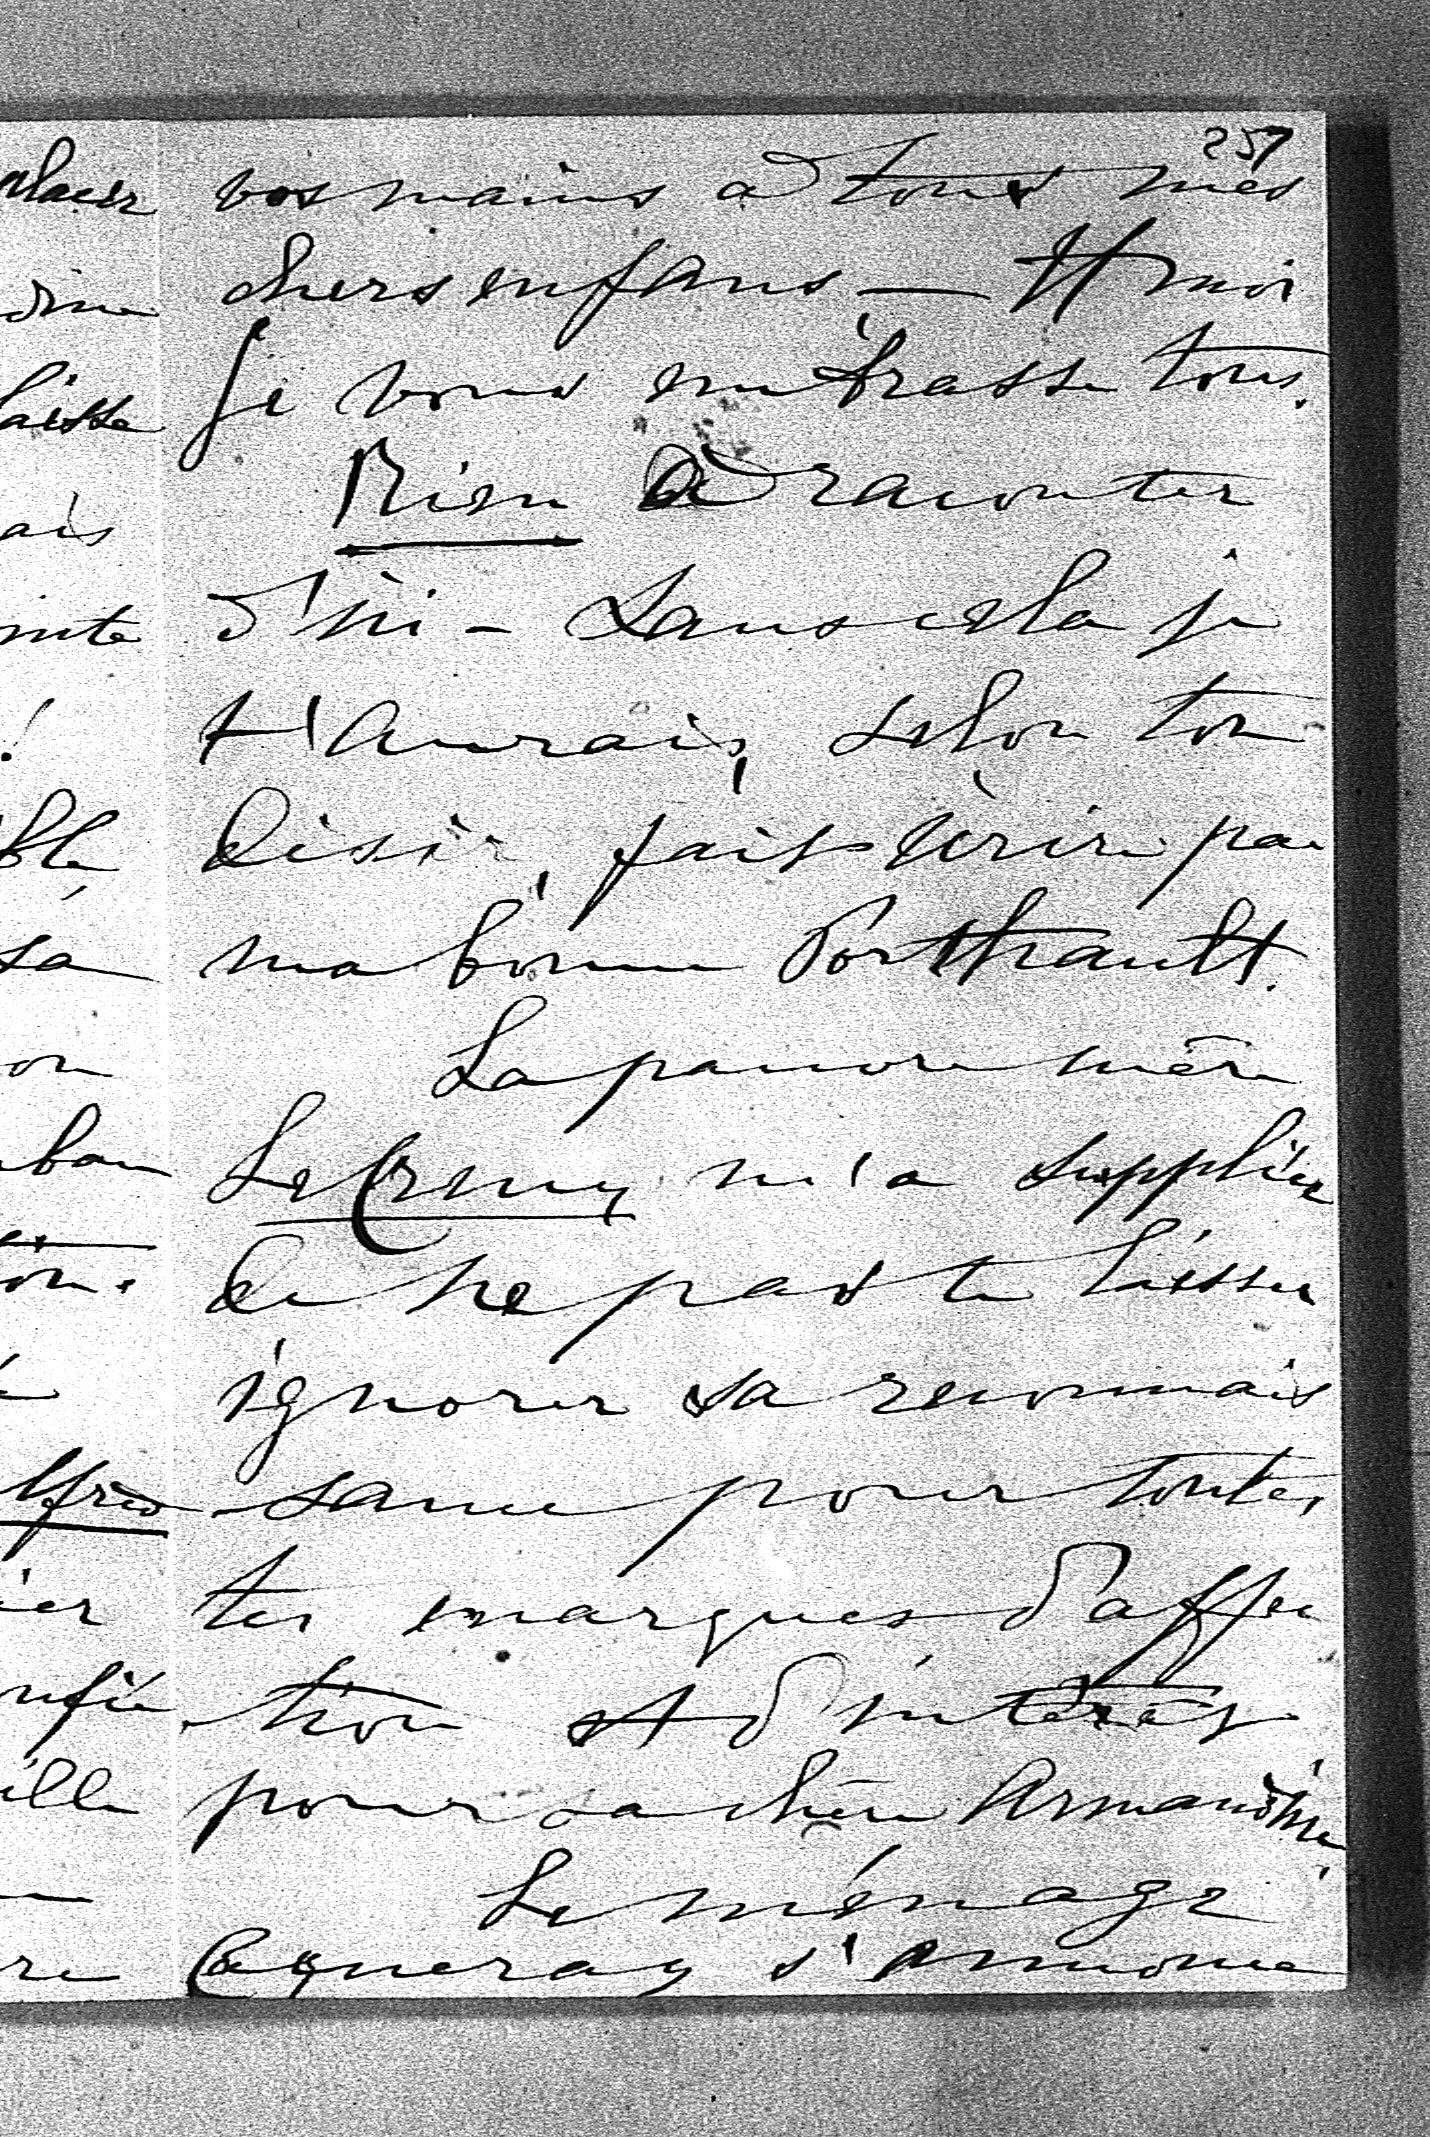 257
vos mains à tous mes
chers enfans — Et moi
je vous embrasse tous.
Rien à raconter
d'ici – Sans cela je
t'aurais, selon ton
désir, fait écrire par
ma bonne Porthault.
La pauvre mère
Le Cremy m'a suppliée
de ne pas te laisser
ignorer sa reconnais
-sance pour toutes
tes marques d'affec
-tion et d'intérêt
pour sa chère Armandine.
Le ménage
Cayneray s'annonce